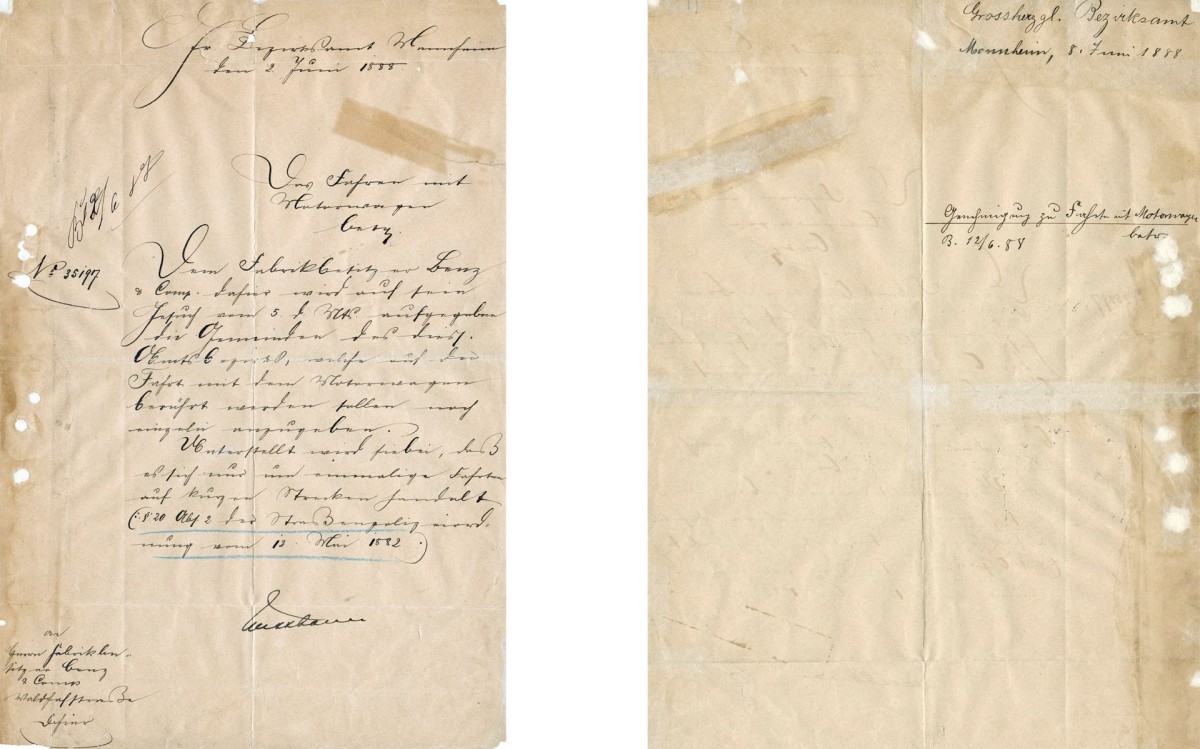 Gr. Bezirksamt Mannheim
den 2. Juni 1888.
6
No 35197
Das Fahren mit
Motorwagen
betr.
Dem Fabrikbesitzer Benz
& Comp. dafür wird auf sein
Gesuch vom 5. d. Mts. aufgegeben
die Gemeinden des diess.
Amtsbezirks, welche auf der
Fahrt mit dem Motorwagen
berührt werden sollen noch
einzeln anzugeben.
Unterstellt wird hiebei, daß
es sich nur um einmalige Fahrten
auf kurzen Strecken handelt
(: § 20 Abs 2 der Straßenpolizeiord-
nung vom 12. Mai 1882 :)
an
Herrn Fabrikbe-
sitzer Benz
& Comp
Waldhofstraße
dahier
Grossherzgl. Bezirksamt
Mannheim, 8. Juni 1888
Genehmigung zu Fahrten mit Motorwagen
betr.
B. 12/6. 88